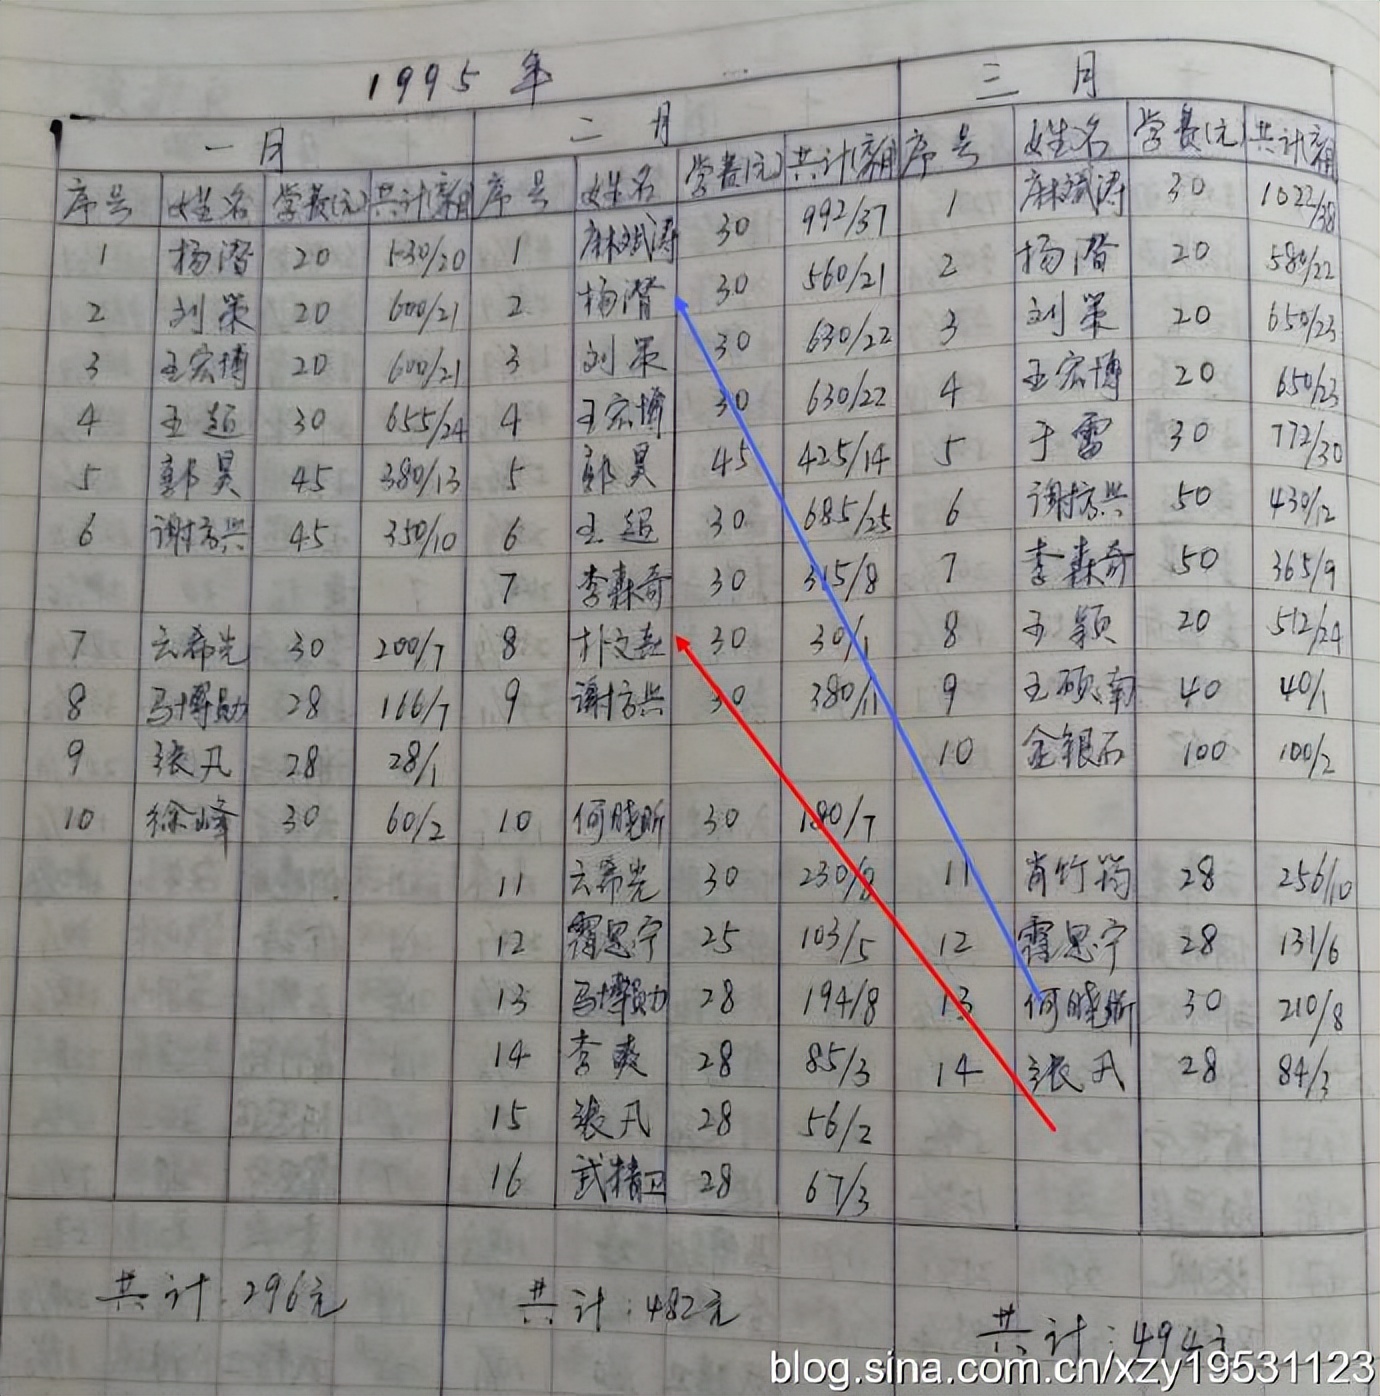 1995 年
三 月
一 月 二 月
序号 姓名 学费(元) 共计(期) 序号 姓名 学费(元) 共计(期) 序号 姓名 学费(元) 共计(期)
1 杨潜 20 530/20 1 麻斌涛 30 992/37 1 麻斌涛 30 1022/38
2 刘策 20 600/21 2 杨潜 30 560/21 2 杨潜 20 580/22
3 王宏博 20 600/21 3 刘策 30 630/22 3 刘策 20 650/23
4 王超 30 655/24 4 王宏博 30 630/22 4 王宏博 20 650/23
5 郭昊 45 380/13 5 郭昊 45 425/14 5 于雷 30 772/30
6 谢振兴 45 350/10 6 王超 30 685/25 6 谢振兴 50 430/12
7 李森奇 30 315/8 7 李森奇 50 365/9
7 云希光 30 200/7 8 朴文 30 30/1 8 王颖 20 512/24
8 马博勋 28 166/7 9 谢振兴 30 380/11 9 王硕南 40 40/1
9 张凡 28 28/1 10 金银石 100 100/2
10 徐峰 30 60/2 10 何晓昕 30 180/7
11 云希光 30 230/8 11 肖竹筠 28 256/10
12 霍思宁 25 103/5 12 霍思宁 28 131/6
13 马博勋 28 194/8 13 何晓昕 30 210/8
14 李爽 28 85/3 14 张凡 28 84/3
15 张凡 28 56/2
16 武精卫 28 67/3
共计:296元 共计:482元 共计:494元
blog.sina.com.cn/xzy19531123